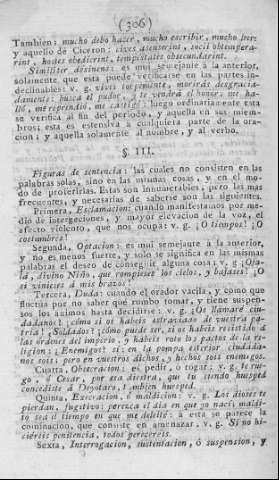 (306)
Tambien: mucho debo hacer, mucho escribir, mucho leer;
y aquello de Ciceron: cives asenserint, socii obtempera-
rint, hostes obedierint, tempestates obsecundarint.
Similiter desinens: es muy semejante á la anterior,
solamente que esta puede verificarse en las partes in-
declinables: v. g. vives torpemente, morirás desgracia-
damente: busca el pudor, y te vendrá el honor: me ha-
lló, me reprendió, me castigó: luego ordinariamente esta
se verifica al fin del período, y aquella en sus miem-
bros; esta es estensiva á cualquiera parte de la ora-
cion; y aquella solamente al nombre, y al verbo.
§. III.
Figuras de sentencia: las cuales no consisten en las
palabras solas, sino en las mismas cosas, y en el mo-
do de proferirlas. Estas son innumerables, pero las mas
frecuentes, y necesarias de saberse son las siguientes.
Primera, Esclamacion: cuando manifestamos por me-
dio de interjecciones, y mayor elevacion de la voz, el
afecto violento, que nos ocupa: v. g. ¡O tiempos! ¡O
costumbres!
Segunda, Optacion: es muí semejante á la anterior,
y no es menos fuerte, y solo se significa en las mismas
palabras el deseo de conseguir alguna cosa: v. g. ¡Oja-
lá, divino Niño, que rompieses los cielos, y bajases! ¡O
si vinieses á mis brazos!
Tercera, Duda: cuando el orador vacila, y como que
fluctúa por no saber qué rumbo tomar, y tiene suspen-
sos los ánimos hasta decidirse: v. g. ¿Os llamaré ciu-
dadanos? ¿cómo si os habeis estraviado de vuestra pa-
tria? ¿Soldados? ¿cómo puede ser, si os habeis resistido á
las órdenes del imperio, y habeis roto los pactos de la re-
ligion; ¿Enemigos? si; en la pompa esterior ciudada-
nos sois; pero en vuestros dichos, y hechos sois enemigos.
Cuarta, Obsecracion: es pedir, ó rogar: v. g. te rue-
go, ó Cesar, por esa diestra, que tu siendo huesped
concediste á Deyotaro, tambien huesped.
Quinta, Execracion, ó maldicion: v. g. Los dioses te
pierdan, fugitivo: perezca el dia en que yo nací: maldi-
to sea el tiempo en que me deleité: á esta se parece la
conminacion, que consiste en amenazar. v. g. Si no hi-
ciéreis penitencia, todos perecereis.
Sexta, Interrogacion, sustentacion, ó suspension, y